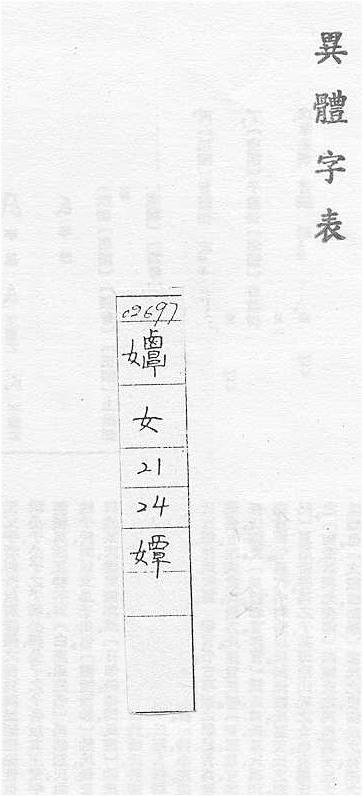 異體字表
c2697
女
21
24
㜤